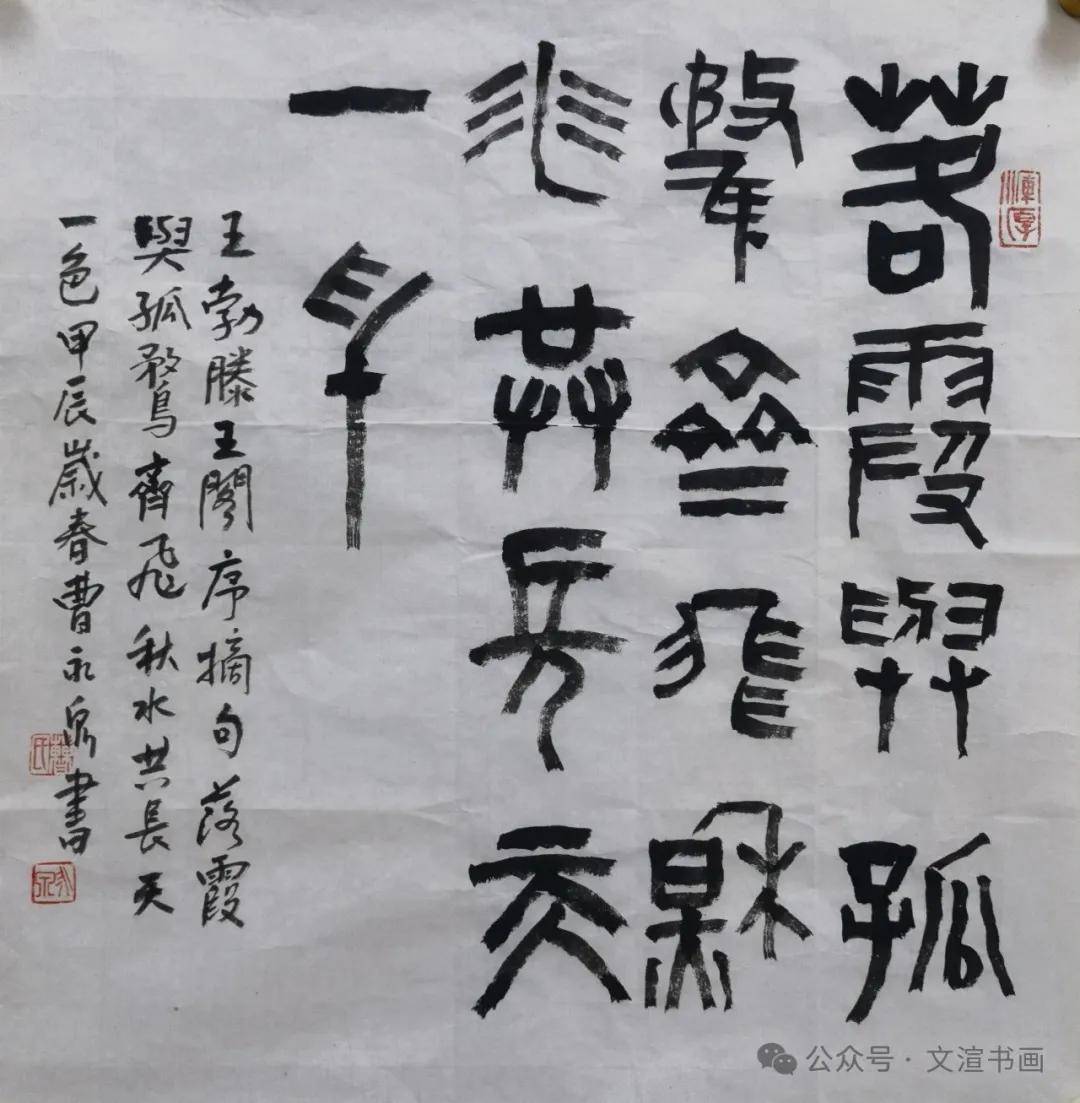 落霞與孤
鶩齊飛秋
水共長天
一色
王勃滕王閣序摘句落霞
與孤鶩齊飛秋水共長天
一色甲辰歲春曹永泉書
公众号·文渲书画